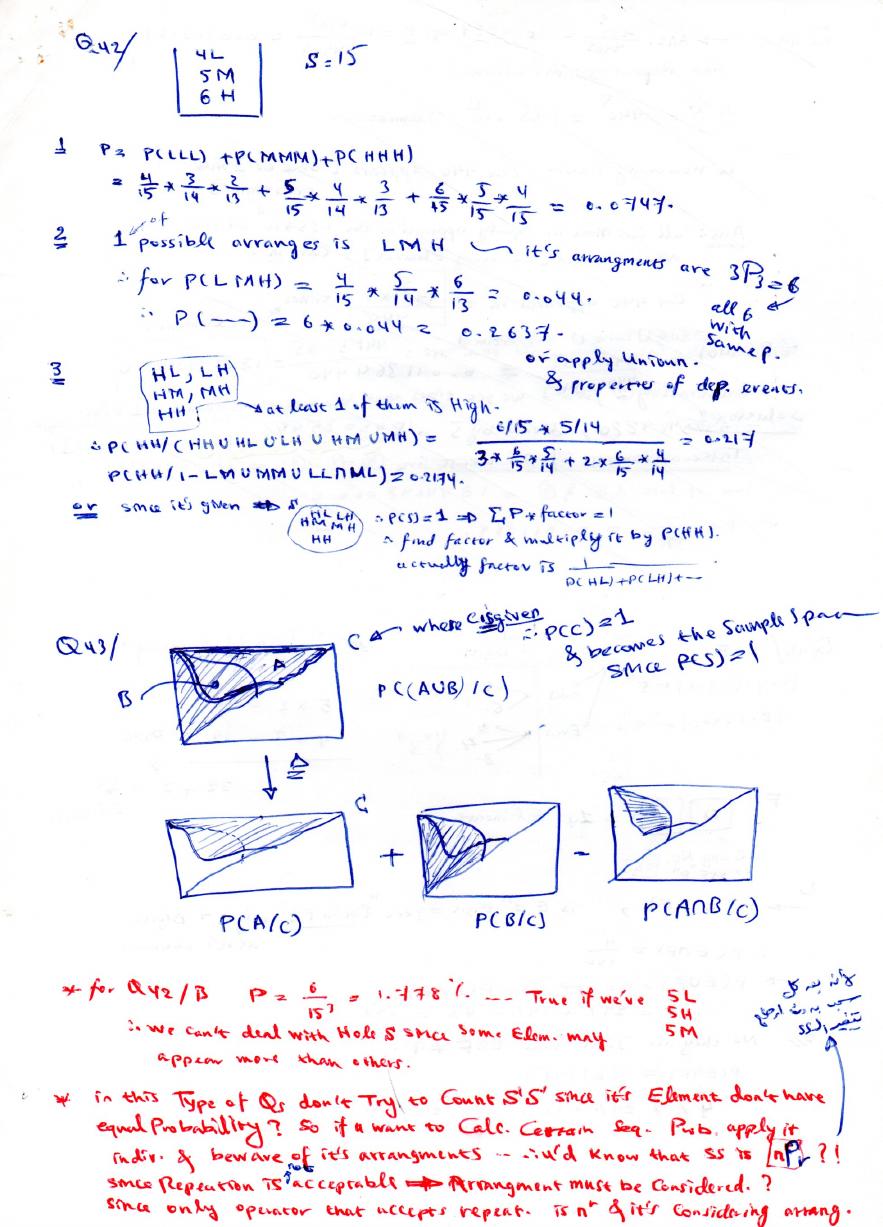 Q42/
4L
5M
6H
S=15
1 P= P(LLL) + P(MMM) + P(HHH)
= 4/15 * 3/14 * 2/13 + 5/15 * 4/14 * 3/13 + 6/15 * 5/15 * 4/15 = 0.0747.
2 1 of possible arranges is LMH it's arrangments are 3P3=6
all 6 with same p.
∴ for P(LMH) = 4/15 * 5/14 * 6/13 = 0.044.
∴ P(---) = 6*0.044 = 0.2637.
or apply Unioun.
& properties of dep. events.
3 HL, LH
HM, MH
HH
at least 1 of them is High.
∴ P(HH/(HHUHLULHUHMUMH) = 6/15 * 5/14 / 3* 6/15 * 5/14 + 2* 6/15 * 4/14 = 0.217
P(HH/1-LMUMMULLNML)=0.2174.
or since it's given => S
HL LH
HM MH
HH
∴ P(S)=1 => ∑P*factor=1
∴ find factor & multiply it by P(HH).
actually factor is 1/P(HL)+P(LH)+--
Q43/
C where C is given ∴ P(C)=1
& becomes the Sample Space
since P(S)=1
A
B
P((AUB)/C)
C
+
-
P(A/C)
P(B/C)
P(A∩B/C)
* for Q42/B P= 6/15³ = 1.778% --- True if we've 5L
5H
5M
∴ we can't deal with Hole S since Some Elem. may
appear more than others.
* in this Type of Qs don't Try to Count S'S' since it's Element don't have
equal Probability? So if u want to Calc. Certain Seq. Prob. apply it
indiv. & beware of it's arrangments -- ∴ u'd know that SS is nPr ?!
since Repeution is not acceptable => Arrangment must be Considered.?
since only operator that accepts repeat. is nʳ & it's Considering arrang.